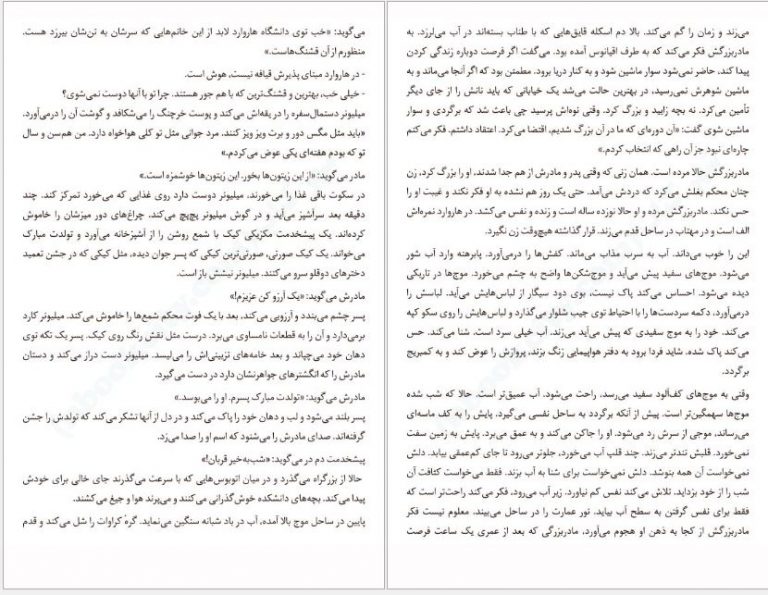 می‌گوید: «خب توی دانشگاه هاروارد لابد از این خانم‌هایی که سرشان به تن‌شان بیرزد هست.
منظورم از آن قشنگ‌هاست.»
- در هاروارد مبنای پذیرش قیافه نیست، هوش است.
- خیلی خب، بهترین و قشنگ‌ترین که با هم جور هستند. چرا تو با آنها دوست نمی‌شوی؟
میلیونر دستمال‌سفره را در یقه‌اش می‌کند و پوست خرچنگ را می‌شکافد و گوشت آن را درمی‌آورد.
«باید مثل مگس دور و برت ویز ویز کنند. مرد جوانی مثل تو کلی هواخواه دارد. من هم‌سن و سال
تو که بودم هفته‌ای یکی عوض می‌کردم.»
مادر می‌گوید: «از این زیتون‌ها بخور. این زیتون‌ها خوشمزه است.»
در سکوت باقی غذا را می‌خورند. میلیونر دوست دارد روی غذایی که می‌خورد تمرکز کند. چند
دقیقه بعد سرآشپز می‌آید و در گوش میلیونر پچ‌پچ می‌کند. چراغ‌های دور میزشان را خاموش
کرده‌اند. یک پیشخدمت مکزیکی کیک با شمع روشن را از آشپزخانه می‌آورد و تولدت مبارک
می‌خواند. یک کیک صورتی، صورتی‌ترین کیکی که پسر جوان دیده، مثل کیکی که در جشن تعمید
دخترهای دوقلو سرو می‌کنند. میلیونر نیشش باز است.
مادرش می‌گوید: «یک آرزو کن عزیزم!»
پسر چشم می‌بندد و آرزویی می‌کند، بعد با یک فوت محکم شمع‌ها را خاموش می‌کند. میلیونر کارد
برمی‌دارد و آن را به قطعات نامساوی می‌برد. درست مثل نقش رنگ روی کیک. پسر یک تکه توی
دهان خود می‌چپاند و بعد خامه‌های تزیینی‌اش را می‌لیسد. میلیونر دست دراز می‌کند و دستان
مادرش را که انگشترهای جواهرنشان دارد در دست می‌گیرد.
مادرش می‌گوید: «تولدت مبارک پسرم. او را می‌بوسد.»
پسر بلند می‌شود و لب و دهان خود را پاک می‌کند و در دل از آنها تشکر می‌کند که تولدش را جشن
گرفته‌اند. صدای مادرش را می‌شنود که اسم او را صدا می‌زد.
پیشخدمت دم در می‌گوید: «شب‌به‌خیر قربان!»
حالا از بزرگراه می‌گذرد و در میان اتوبوس‌هایی که با سرعت می‌گذرند جای خالی برای خودش
پیدا می‌کند. بچه‌های دانشکده خوش‌گذرانی می‌کنند و می‌پرند هوا و جیغ می‌کشند.
پایین در ساحل موج بالا آمده، آب در باد شبانه سنگین می‌نماید. گره کراوات را شل می‌کند و قدم
می‌زند و زمان را گم می‌کند. بالا دم اسکله قایق‌هایی که با طناب بسته‌اند در آب می‌لرزد. به
مادربزرگش فکر می‌کند که به طرف اقیانوس آمده بود. می‌گفت اگر فرصت دوباره زندگی کردن
پیدا کند، حاضر نمی‌شود سوار ماشین شود و به کنار دریا برود. مطمئن بود که اگر آنجا می‌ماند و به
ماشین شوهرش نمی‌رسید، در بهترین حالت می‌شد یک خیابانی که باید نانش را از جای دیگر
تأمین می‌کرد. نه بچه زایید و بزرگ کرد. وقتی نوه‌اش پرسید چی باعث شد که برگردی و سوار
ماشین شوی گفت: «آن دوره‌ای که ما در آن بزرگ شدیم، اقتضا می‌کرد. اعتقاد داشتم. فکر می‌کنم
چاره‌ای نبود جز آن راهی که انتخاب کردم.»
مادربزرگش حالا مرده است. همان زنی که وقتی پدر و مادرش از هم جدا شدند، او را بزرگ کرد، زن
چنان محکم بغلش می‌کرد که دردش می‌آمد. حتی یک روز هم نشده به او فکر نکند و غیبت او را
حس نکند. مادربزرگش مرده و او حالا نوزده ساله است و زنده و نفس می‌کشد. در هاروارد نمره‌اش
الف است و در مهتاب در ساحل قدم می‌زند. قرار گذاشته هیچ‌وقت زن نگیرد.
این را خوب می‌داند. آب به سرب مذاب می‌ماند. کفش‌ها را درمی‌آورد. پابرهنه وارد آب شور
می‌شود. موج‌های سفید پیش می‌آید و موج‌شکن‌ها واضح به چشم می‌خورد. موج‌ها در تاریکی
دیده می‌شود. احساس می‌کند پاک نیست، بوی دود سیگار از لباس‌هایش می‌آید. لباسش را
درمی‌آورد. دکمه سردست‌ها را با احتیاط توی جیب شلوار می‌گذارد و لباس‌هایش را روی سکو کپه
می‌کند. خود را به موج سفیدی که پیش می‌آید می‌زند. آب خیلی سرد است. شنا می‌کند. حس
می‌کند پاک شده. شاید فردا برود به دفتر هواپیمایی زنگ بزند، پروازش را عوض کند و به کمبریج
برگردد.
وقتی به موج‌های کف‌آلود سفید می‌رسد. راحت می‌شود. آب عمیق‌تر است. حالا که شب شده
موج‌ها سهمگین‌تر است. پیش از آنکه برگردد به ساحل نفسی می‌گیرد. پایش را به کف ماسه‌ای
می‌رساند، موجی از سرش رد می‌شود. او را جاکن می‌کند و به عمق می‌برد. پایش به زمین سفت
نمی‌خورد. قلبش تندتر می‌زند. چند قلپ آب می‌خورد، جلوتر می‌رود تا جای کم‌عمقی بیابد. دلش
نمی‌خواست آن همه بنوشد. دلش نمی‌خواست برای شنا به آب بزند. فقط می‌خواست کثافت آن
شب را از خود بزداید. تلاش می‌کند نفس کم نیاورد. زیر آب می‌رود، فکر می‌کند راحت‌تر است که
فقط برای نفس گرفتن به سطح آب بیاید. نور عمارت را در ساحل می‌بیند. معلوم نیست فکر
مادربزرگش از کجا به ذهن او هجوم می‌آورد، مادربزرگی که بعد از عمری یک ساعت فرصت